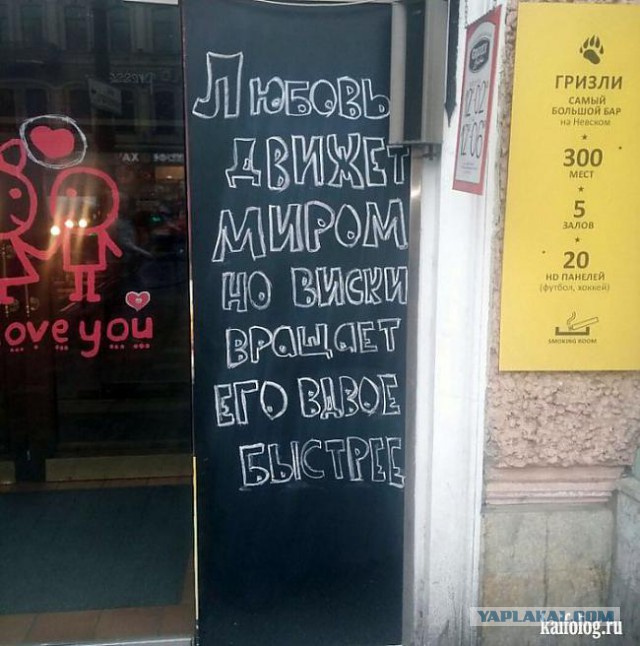 Любовь
движет
миром
но виски
вращает
его вдвое
быстрее
ove you
ГРИЗЛИ
САМЫЙ
БОЛЬШОЙ БАР
на Невском
300
МЕСТ
5
ЗАЛОВ
20
HD ПАНЕЛЕЙ
(футбол, хоккей)
SMOKING ROOM
YAPLAKAL.COM
kaifolog.ru